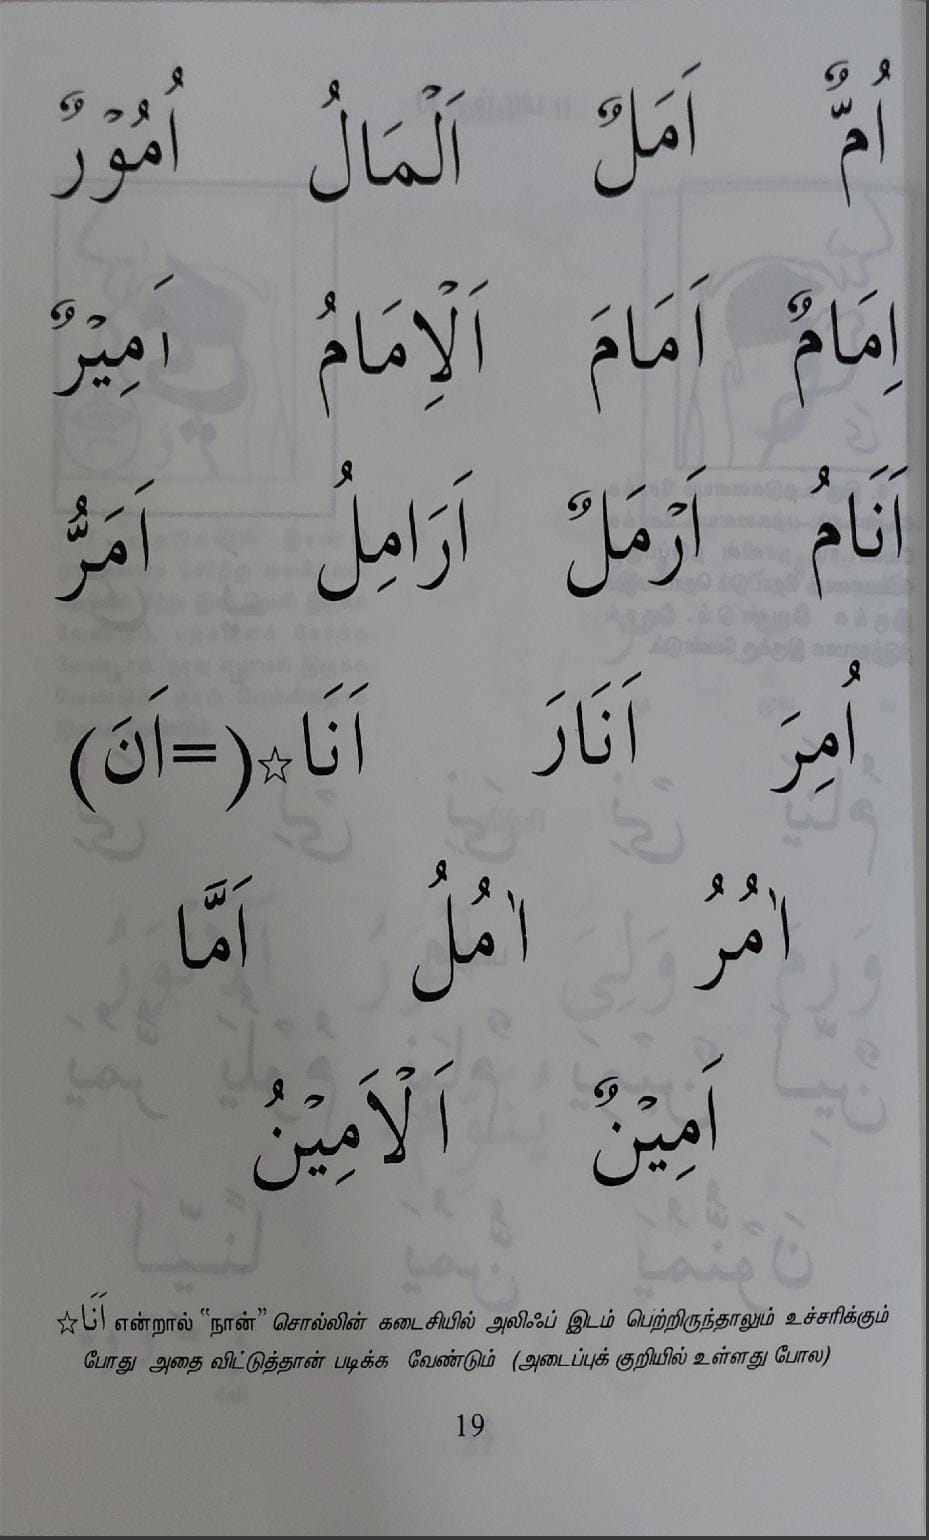 اُمٌّ اَمَلٌ اَلْمَالُ اُمُوْرٌ
اِمَامٌ اَمَامَ اَلْاِمَامُ اَمِيْرٌ
اَنَامُ اَرْمَلٌ اَرَامِلُ اَمَرُّ
اُمِرَ اَنَارَ اَنَا☆(=اَنَ)
اٰمُرُ اٰمُلُ اَمَّا
اَمِيْنٌ اَلْاَمِيْنُ
☆اَنَا என்றால் “நான்” சொல்லின் கடைசியில் அலிஃப் இடம் பெற்றிருந்தாலும் உச்சரிக்கும்
போது அதை விட்டுத்தான் படிக்க வேண்டும் (அடைப்புக் குறியில் உள்ளது போல)
19